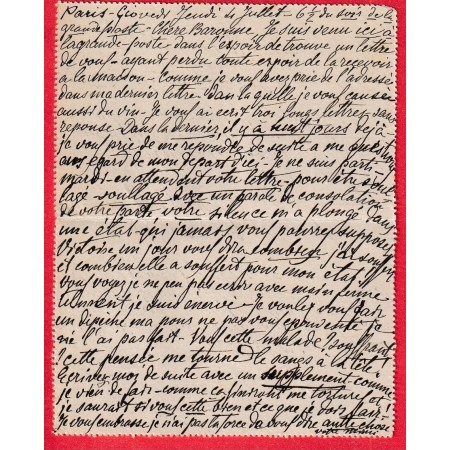 Paris - Giovedi Jeudi 4 Juillet - 6½ du soir de la
grande poste - Chère Baronne - Je suis venu ici à
la grande poste dans l'espoir de trouve un lettre
de vous - ayant perdu toute espoir de la recevoir
à la maison - Comme je vous avez prié de l'adresse
dans ma dernier lettre - Dans la quelle je vous causée
aussi du vin - Je vous ai ecrit troi longs lettres sans
reponse - Dans la dernier, il y a sept jours dejà
je vous prié de me repondre de suite a me question
au egard de mon depart d'ici - Je ne suis parti
mardi en attendent votre lettre - pour être soula
gé - soullagé avec un parole de consolation
de votre part - votre silence m'a plongé dans
une état - qui jamais vous pourrez supposer
Victoire un jour vous dira combien j'ai souffert
et combien elle a souffert pour mon état
vous voyez je ne peu pas ecrir avec mein ferme
telment je suis enervé - Je voulez vous fair
un dipeche ma pons ne pas vous epouvente je
ne l'ai pas fait - Vous cette malade souffrante
cette pensée me tourne le sangs à la tête!
Ecrivez moi de suite avec un supplement - comme
je vien de fair - comme ça finirons me torture et
je saurait si vous cette bien et ce que je dois fair
Je vous embrasse je n'ai pas la force de vous dire autre chose
votre